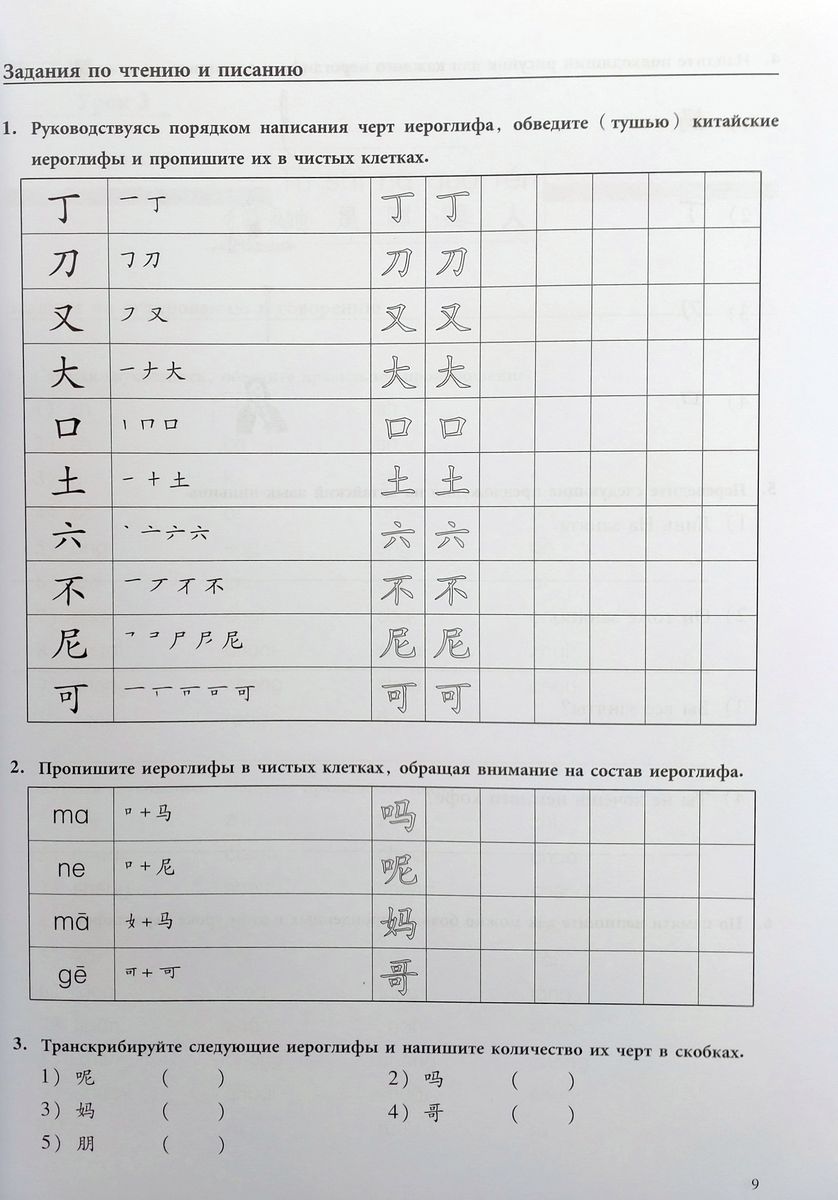 Задания по чтению и писанию
1. Руководствуясь порядком написания черт иероглифа, обведите (тушью) китайские
иероглифы и пропишите их в чистых клетках.
丁 一 丁 丁 丁
刀 ㇆ 刀 刀 刀
又 ㇇ 又 又 又
大 一 ナ 大 大 大
口 丨 冂 口 口 口
土 一 十 土 土 土
六 丶 亠 六 六 六
不 一 丆 不 不 不
尼 ㇕ コ 尸 尼 尼 尼
可 一 可 可 可
2. Пропишите иероглифы в чистых клетках, обращая внимание на состав иероглифа.
ma 口 + 马 吗
ne 口 + 尼 呢
mā 女 + 马 妈
gē 可 + 可 哥
3. Транскрибируйте следующие иероглифы и напишите количество их черт в скобках.
1) 呢 ( ) 2) 吗 ( )
3) 妈 ( ) 4) 哥 ( )
5) 朋 ( )
9